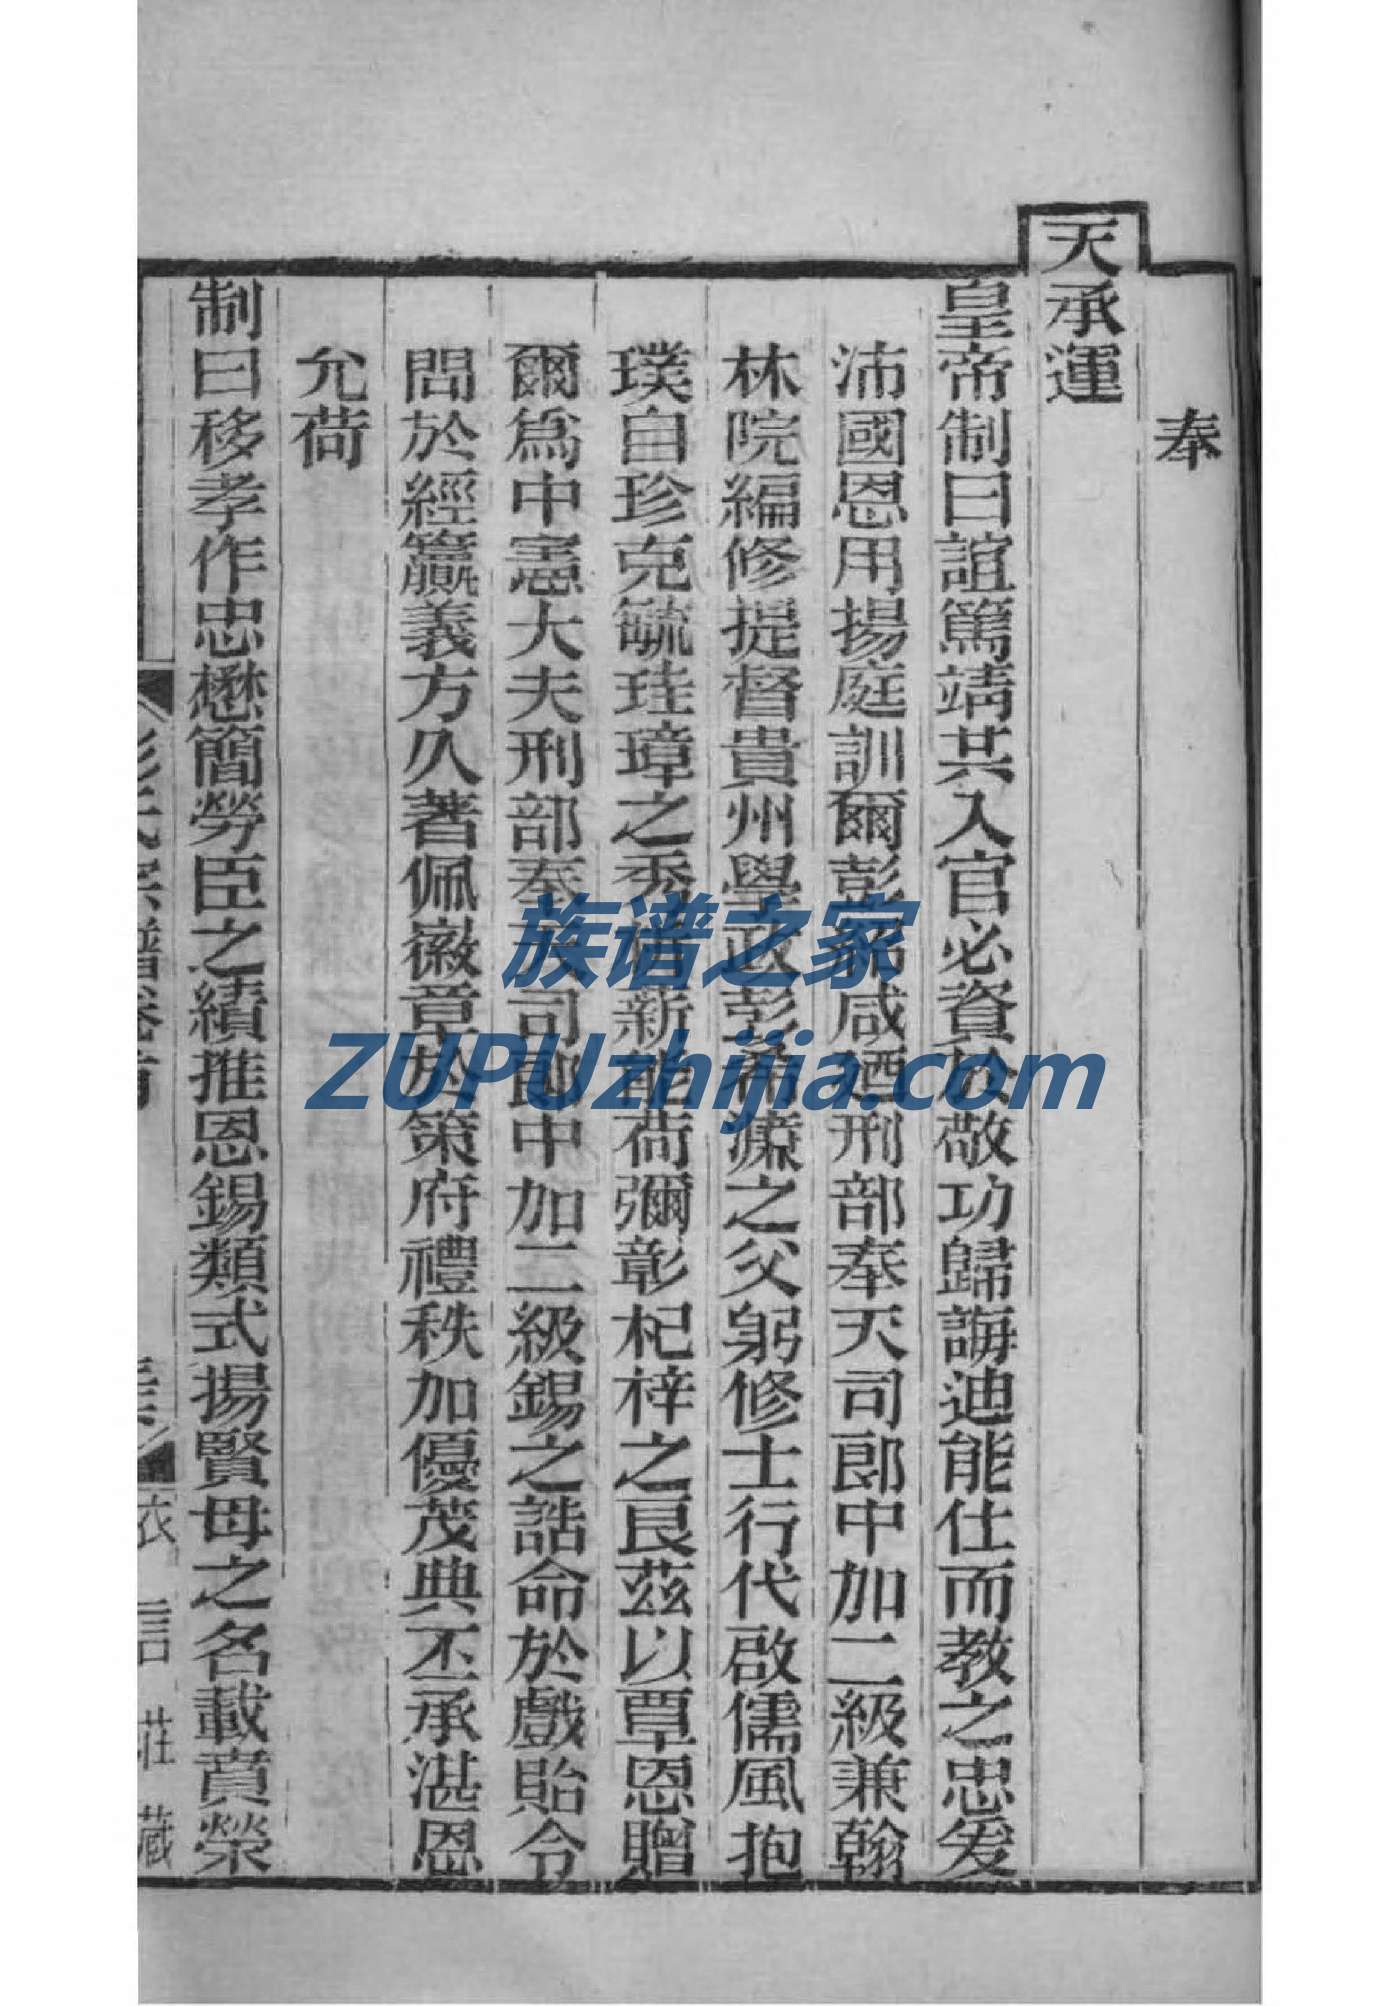 奉
天承運
皇帝制曰誼篤靖共入官必資於敬功歸誨迪能仕而教之忠爰
沛國恩用揚庭訓爾彭紹咸廼刑部奉天司郎中加二級兼翰
林院編修提督貴州學政彭希濂之父躬修士行代啟儒風抱
璞自珍克毓珪璋之秀析薪能荷彌彰杞梓之良茲以覃恩贈
爾為中憲大夫刑部奉天司郎中加二級錫之誥命於戲貽令
問於經籯義方久著佩徽章於策府禮秩加優茂典丕承湛恩
允荷
制曰移孝作忠懋簡勞臣之績推恩錫類式揚賢母之名載賁榮
彭氏宗譜卷首
衣言莊藏
族谱之家
ZUPUzhijia.com